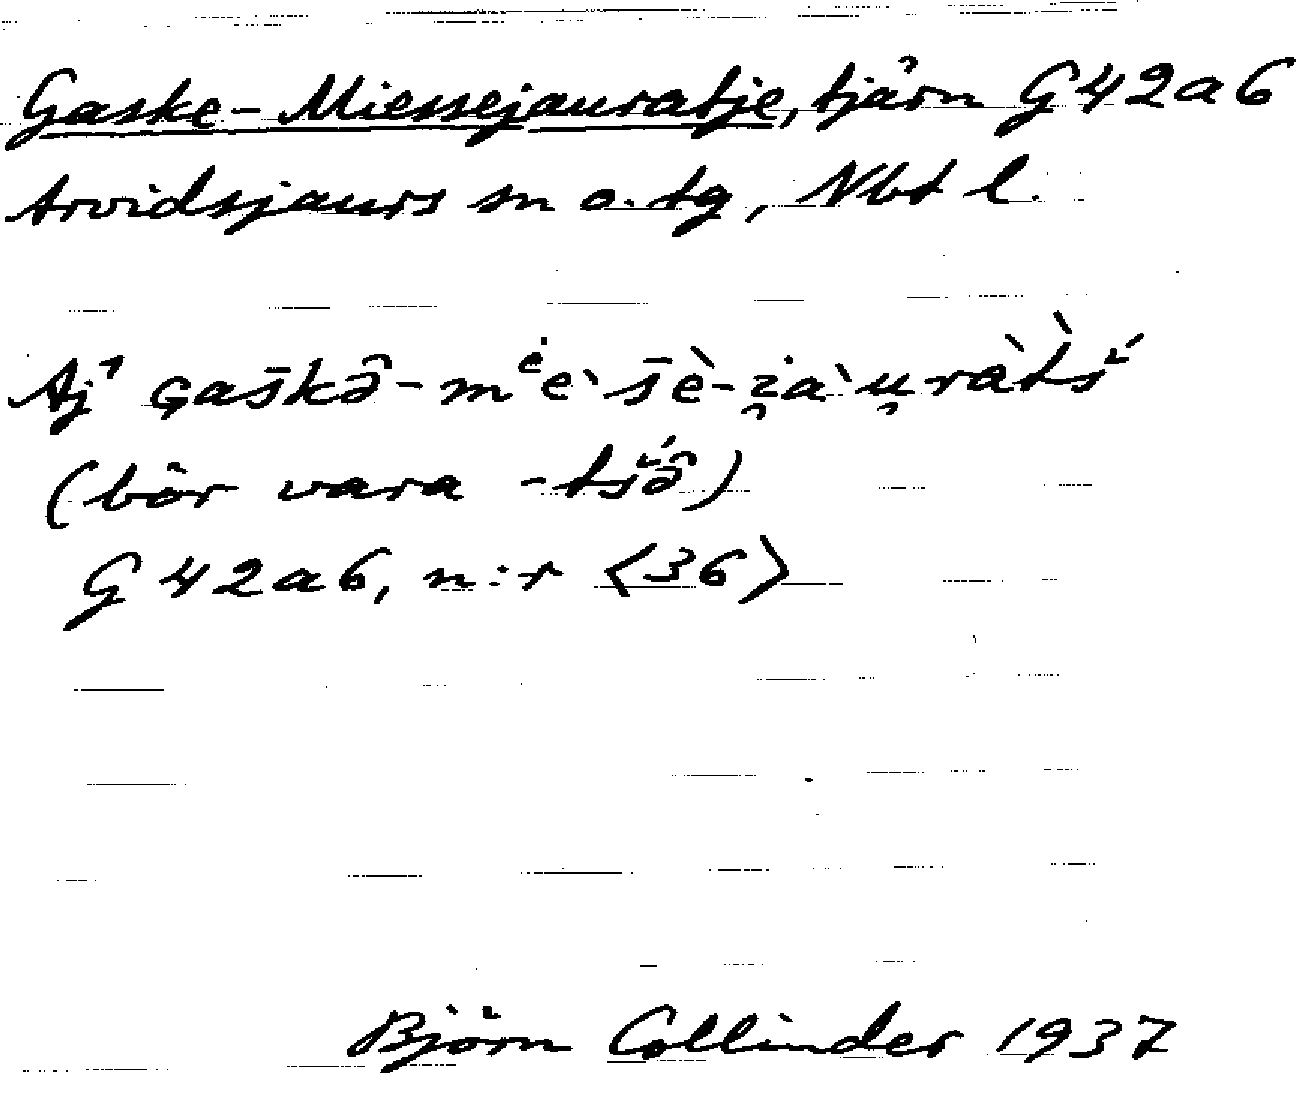 Gaske-Miessejauratje, tjärn G42a6
Arvidsjaurs sn o. tg, Nbt l.
Aj¹ gas̄kə̂-mᵉ̇e`s̄è-i̯a`u̯ràtś
(bör vara -tśə̂)
G42a6, n:r <36>
Björn Collinder 1937